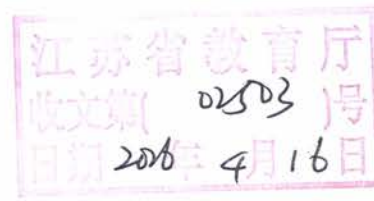 江苏省教育厅
收文第( 02503 )号
日期 2026年 4月 16日